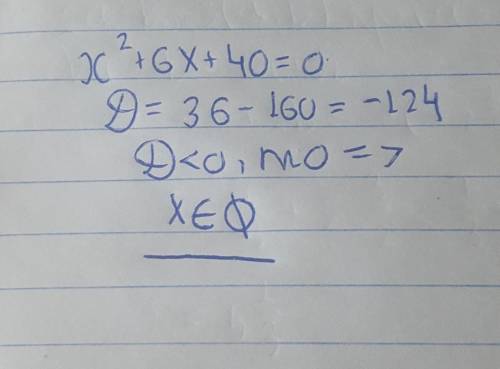 x²+6x+40=0.
D=36-160=-124
D<0, то =>
x∈∅